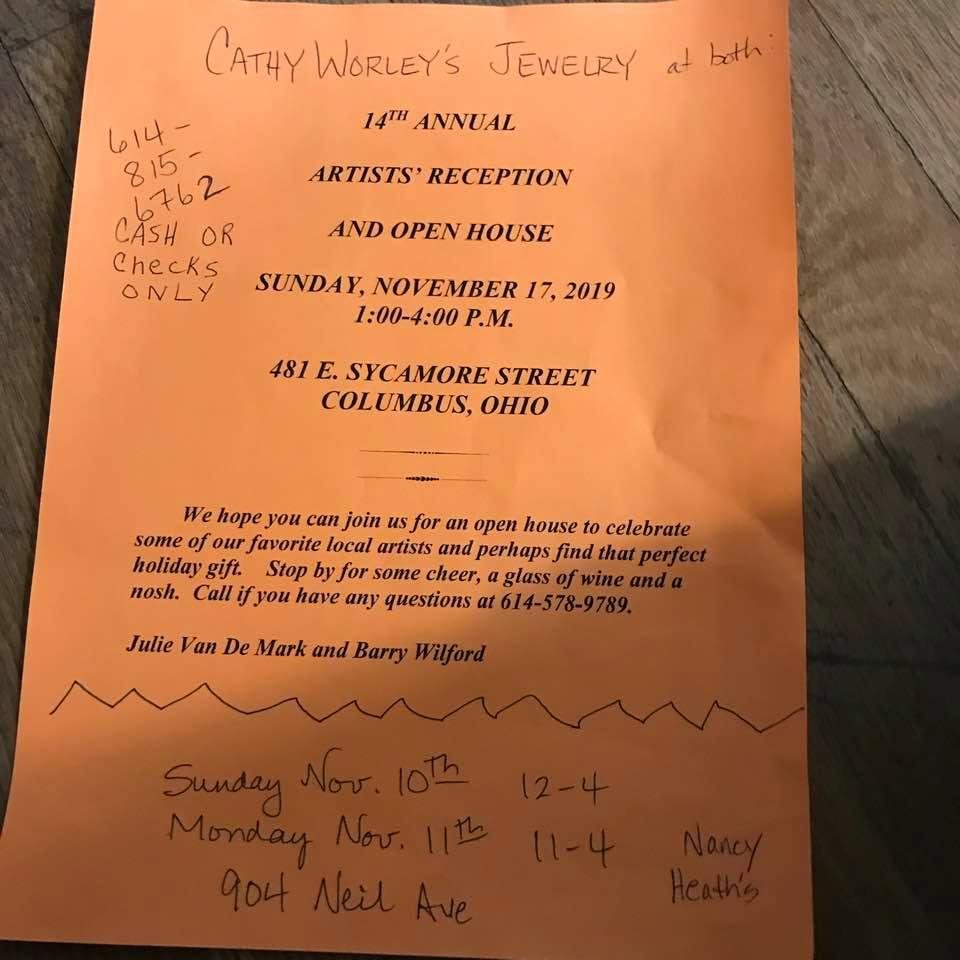 CATHY WORLEY'S JEWELRY at both:
614-
815-
6762
CASH OR
Checks
ONLY
14TH ANNUAL
ARTISTS' RECEPTION
AND OPEN HOUSE
SUNDAY, NOVEMBER 17, 2019
1:00-4:00 P.M.
481 E. SYCAMORE STREET
COLUMBUS, OHIO
We hope you can join us for an open house to celebrate
some of our favorite local artists and perhaps find that perfect
holiday gift. Stop by for some cheer, a glass of wine and a
nosh. Call if you have any questions at 614-578-9789.
Julie Van De Mark and Barry Wilford
Sunday Nov. 10th 12-4
Monday Nov. 11th 11-4
904 Neil Ave
Nancy
Heath's